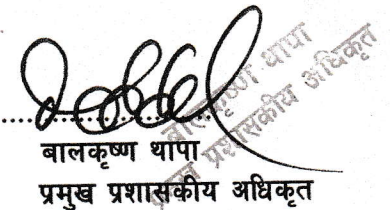 बालकृष्ण थापा
प्रमुख प्रशासकीय अधिकृत
बालकृष्ण थापा
प्रमुख प्रशासकीय अधिकृत